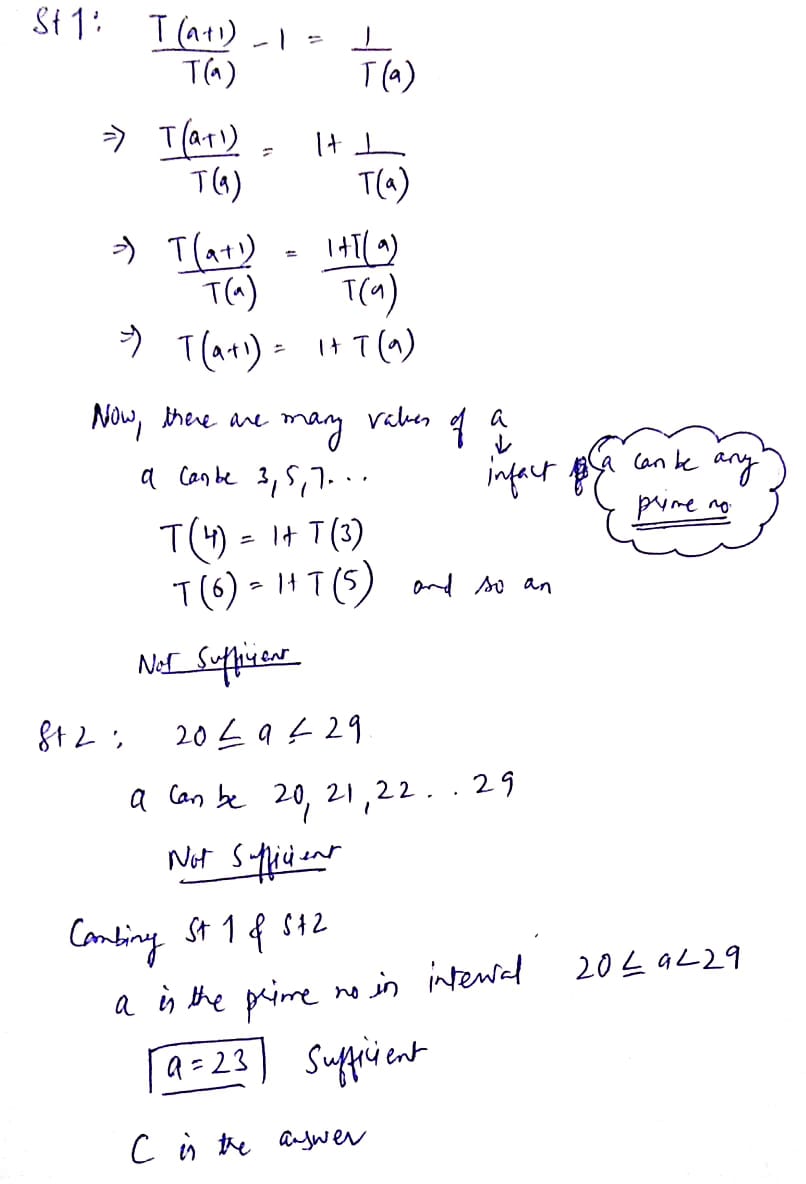 St 1: T(a+1)/T(a) - 1 = 1/T(a)
⇒ T(a+1)/T(a) = 1 + 1/T(a)
⇒ T(a+1)/T(a) = 1+T(a)/T(a)
⇒ T(a+1) = 1 + T(a)
Now, there are many values of a
↓
a can be 3, 5, 7...
infact a can be any prime no.
T(4) = 1 + T(3)
T(6) = 1 + T(5) and so an
Not Sufficient
St 2: 20 ≤ a ≤ 29
a can be 20, 21, 22 . . 29
Not Sufficient
Combing St 1 & St 2
a is the prime no in interval 20 ≤ a < 29
a = 23 Sufficient
C is the answer